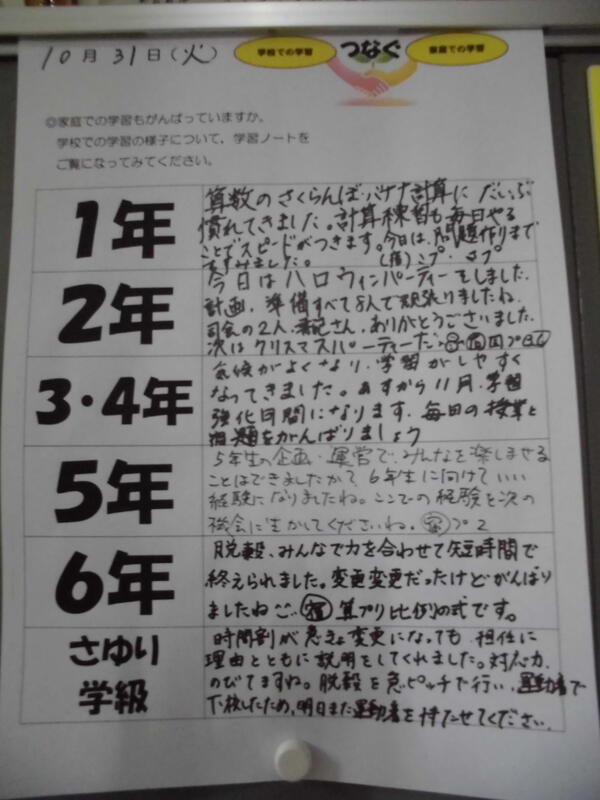 10月31日(火)
学校での学習 つなぐ 家庭での学習
◎家庭での学習もがんばっていますか。
学校での学習の様子について、学習ノートを
ご覧になってみてください。
1年
算数のさくらんぼ・バナナ計算に だいぶ
慣れてきました。計算練習も毎日やる
ことでスピードがつきます。今日は、問題作りまで
すすみました。
2年
今日はハロウィンパーティーをしました。
計画、準備すべて8人で頑張りましたね。
司会の2人、書記さん、ありがとうございました。
次はクリスマスパーティーだ
3・4年
気候がよくなり、学習がしやすく
なってきました。あすから11月、学習
強化月間になります。毎日の授業と
宿題をがんばりましょう
5年
5年生の企画・運営で、みんなを楽しませる
ことはできましたか? 6年生に向けていい
経験になりましたね。ここでの経験を次の
機会に生かしてくださいね。 プ2
6年
脱穀、みんなで力を合わせて短時間で
終えられました。変更変更だったけどがんばり
ましたね 算プリ比例の式です。
さゆり
学級
時間割が急きょ変更になっても、担任に
理由とともに説明をしてくれました。対応力、
のびてますね。脱穀を急ピッチで行い、運動着で
下校したため、明日また運動着を持たせてください。